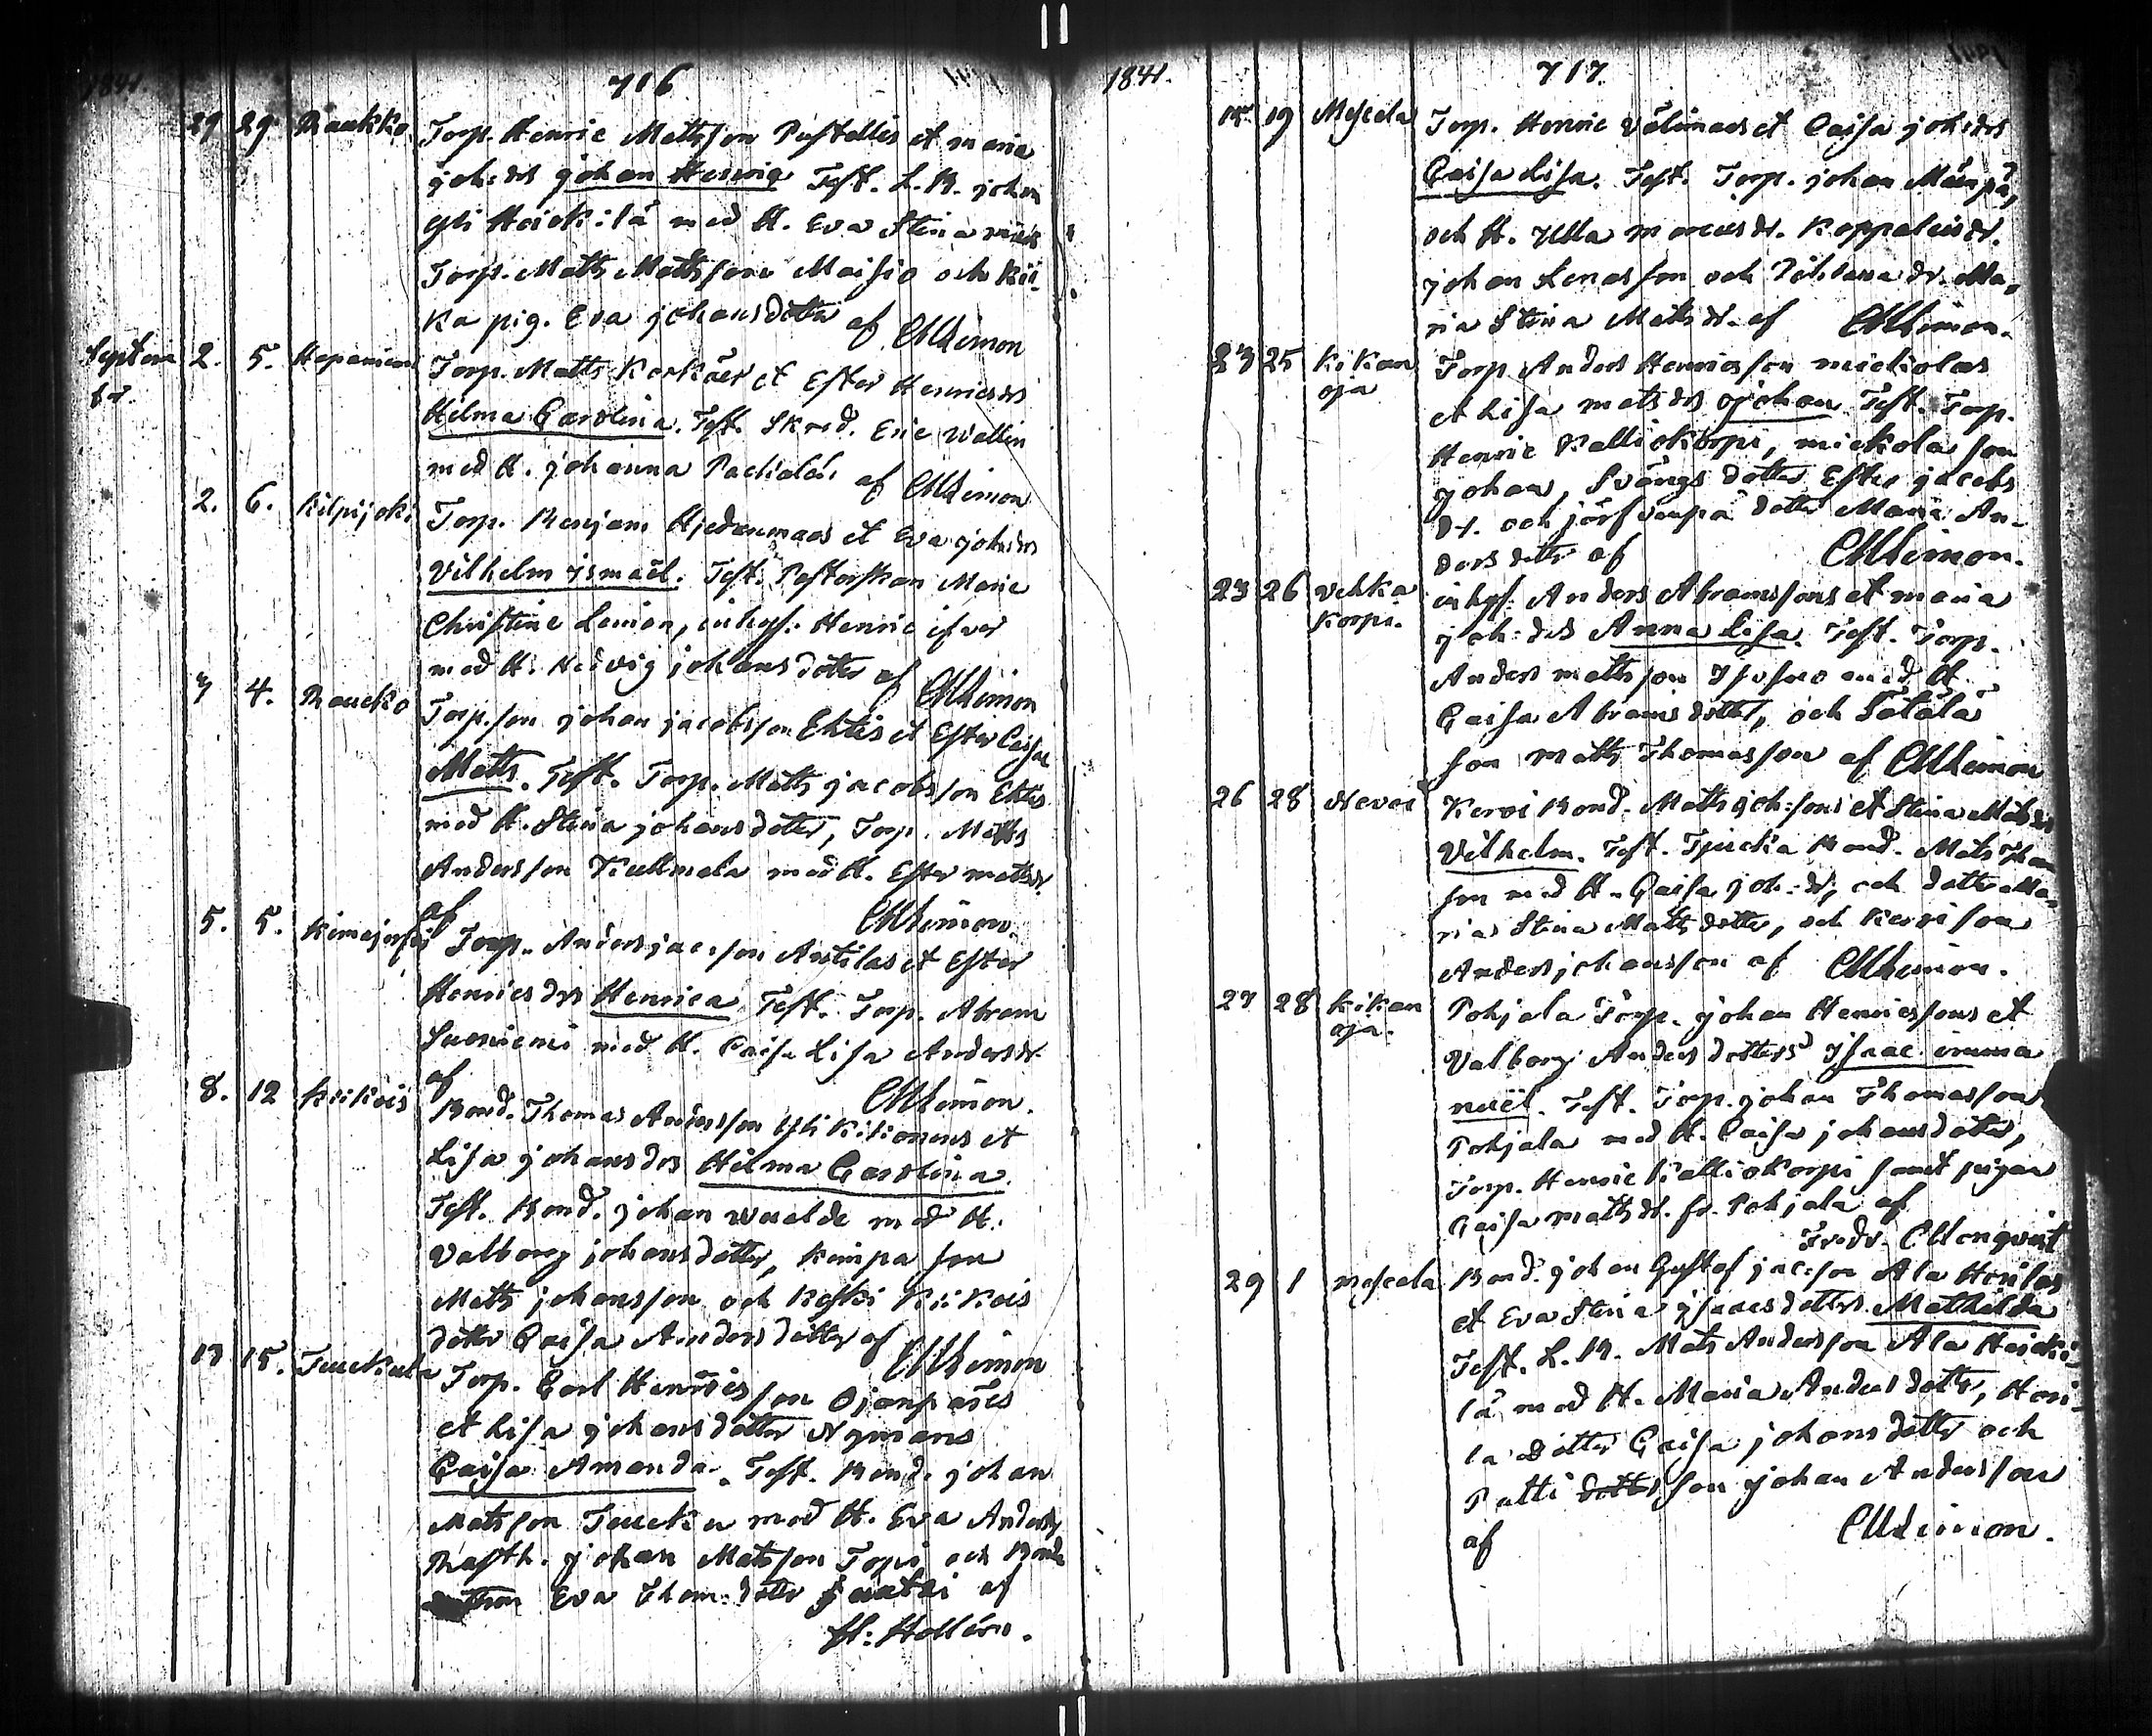 1841. 716
29 29. Raukko Torp. Henric Mattsson Pastellis et maria
joh:drs johan Henric Test. L. B. johan
yli Heickilä med H. Eva Stina
Torp. Matts Mattsson Maisio och Kii-
ka pig. Eva johansdotter af CMLimon
Septem 2. 5. Haparniemi Torp. Matts Korkäer et Ester Henricsdrs
br. Hilma Carolina. Test. Skred. Eric Wallin
med H. johanna af CMLimon
2. 6. Kilpijoki Torp. Benjam Hjedanmaas et Eva johsdrs
Vilhelm ismaël. Test. Pastorskan Marie
Christine Lenion, inhys: Henric
med H. Hedvig johansdotter af CMLimon
3 4. Raucko Torp.son johan jacobsson Ehtis et Ester Caisas
Matts. Test. Torp. Matts jacobsson Ehtis
med H. Stina johansdotter, Torp. Matts
Andersson Kullmala med H. Ester mattsdr.
af CMLimon.
5. 5. Kimejerfvi Torp. Anders jacsson Antilas et Ester
Henricsdrs Henrica Test. Torp. Abram
Suoniemi med H. Caisa Lisa Andersdr.
af CMLimon.
8. 12 Kiikois Bond. Thomas Andersson yli Kikonens et
Lisa johansdrs Hilma Carolina.
Test. Bond. johan wuelde med H.
Valborg johansdotter, Kimpa son
Matts johansson och Keski Kiikois
dotter Caisa Andersdotter af CMLimon
13 15. Teuckula Torp. Carl Henricsson Ojanpääs
et Lisa johansdotter Nymans
Caisa Amanda. Test. Bond. johan
Matsson Teucku med H. Eva Andersdr,
Rusth. johan Matsson Topi och Bonde
Eva Thom:dotter af
H: Hollärn.
1841. 717.
15. 19 Meskala Torp. Henric Välimaas et Caisa joh:drs
Caisa Lisa. Test. Torp. johan Mäenpä,
och H. Ulla marcusdr. Koppaleisdr.
johan Lenasson och dr. Ma,
ria Stina Matsdr. af CMLimon.
23 25 Kikan Torp Anders Henricsson mickolas
oja et Lisa matsdrs johan Test. Torp.
Henric Kalliokorpi, mickola son
johan, Svängs dotter Ester jacobs
dr. och järfvenpä dotter Maria An-
dersdotter af CMLimon.
23 26 Vehka inhys: Anders Abramssons et maria
Korpi. joh:drs Anna Lisa. Test. Torp.
Anders mattsson Isosuo med H.
Caisa Abramsdotter, och Sätälä
son Matts Thomasson af CMLimon
26 28 Nevoi Kervi Bond. Matts joh:sons et Stina Matsdrs
Vilhelm. Test. Tjucka Bond. Mats Thom
son med H. Caisa joh:dr, och dotter Ma,
ria Stina Mattsdotter, och Kervi son
Anders johansson af CMLimon.
27 28 Kikan Pohjala Torp. johan Henricssons et
oja. Valborg Andersdotters Isaac imma
nuël. Test. Torp. johan Thomasson
Pohjala med H. Caisa johansdotter,
Torp. Henric Kalliokorpi samt pigan
Caisa mattsdr. fr. Pohjala af
Fredr. Almqvist
29 1 Meskala Bond. johan Gustaf jac:son Ala Honilas
et Eva Stina Isaacsdotters Mathilda
Test. L. B. Mats Andersson Ala Heicki-
lä med H. Maria Andersdotter, Honi-
la dotter Caisa johansdotter och
Patti dotter son johan Andersson
af CMLimon.